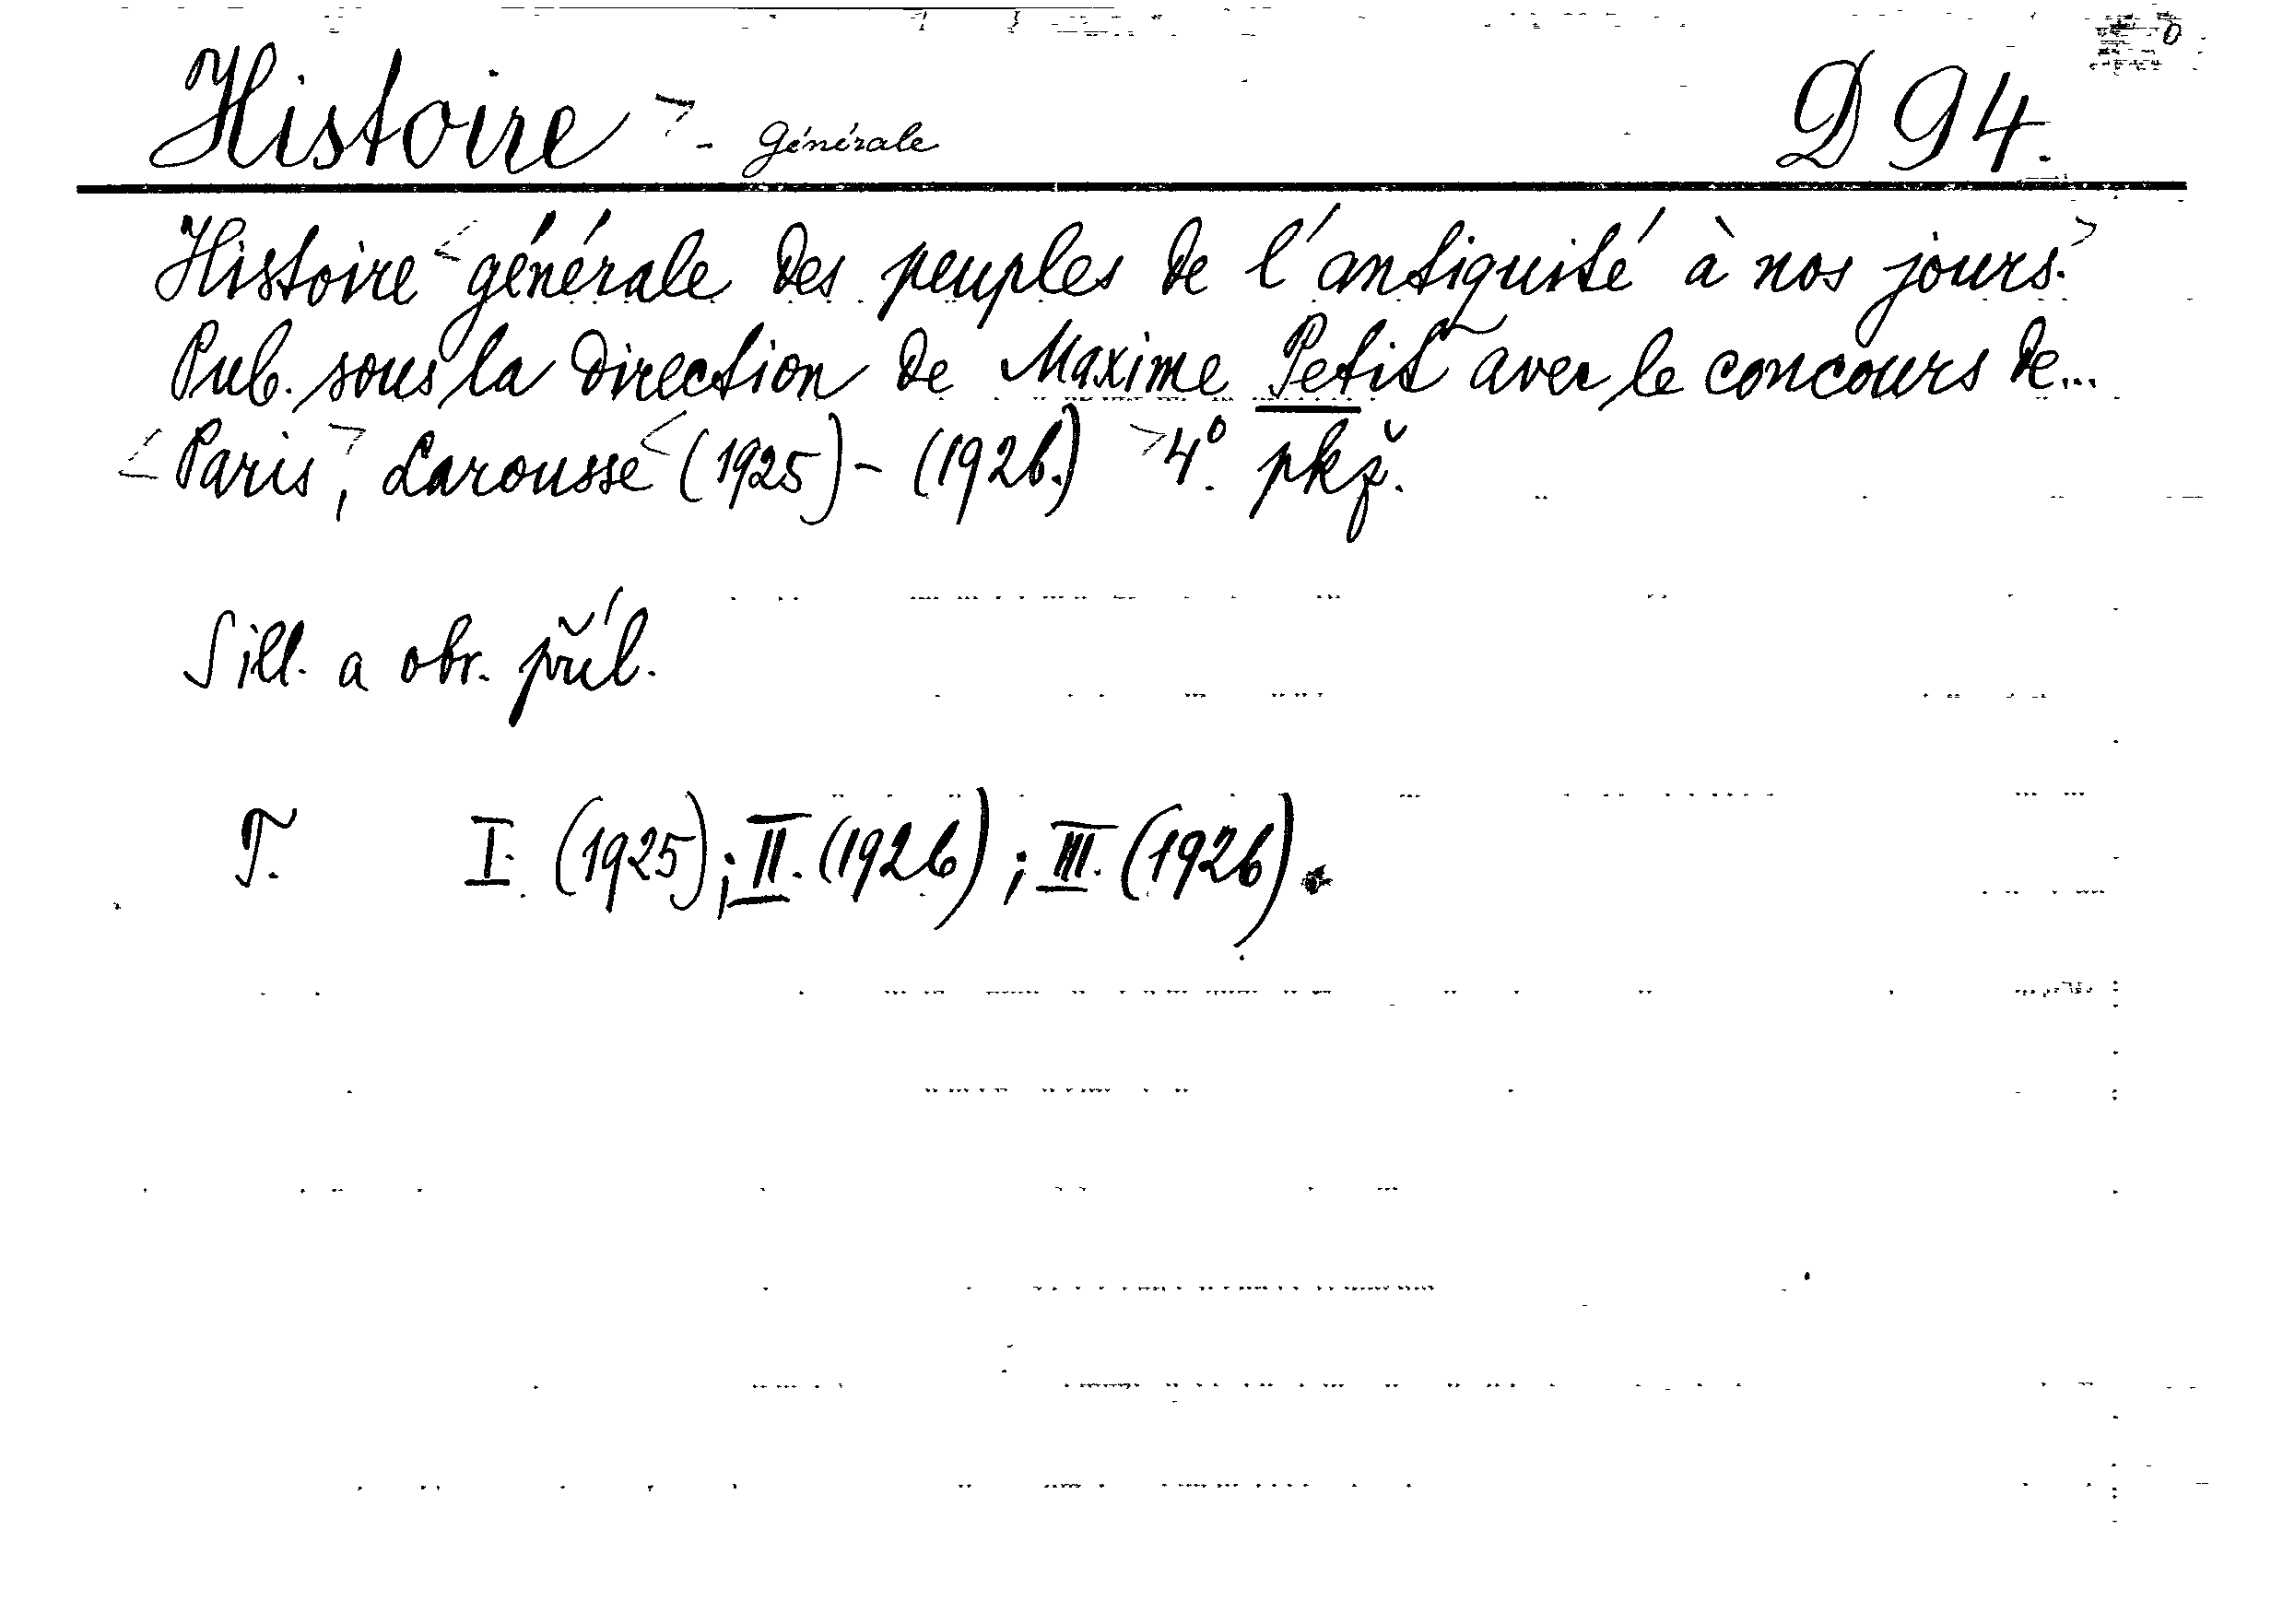 Histoire - générale D 94.
Histoire générale des peuples de l'antiquité à nos jours.
Pub. sous la direction de Maxime Petit avec le concours de...
Paris, Larousse (1925) - (1926.) 4°. pkž.
S ill. a obr. příl.
T. I. (1925); II. (1926); III. (1926).